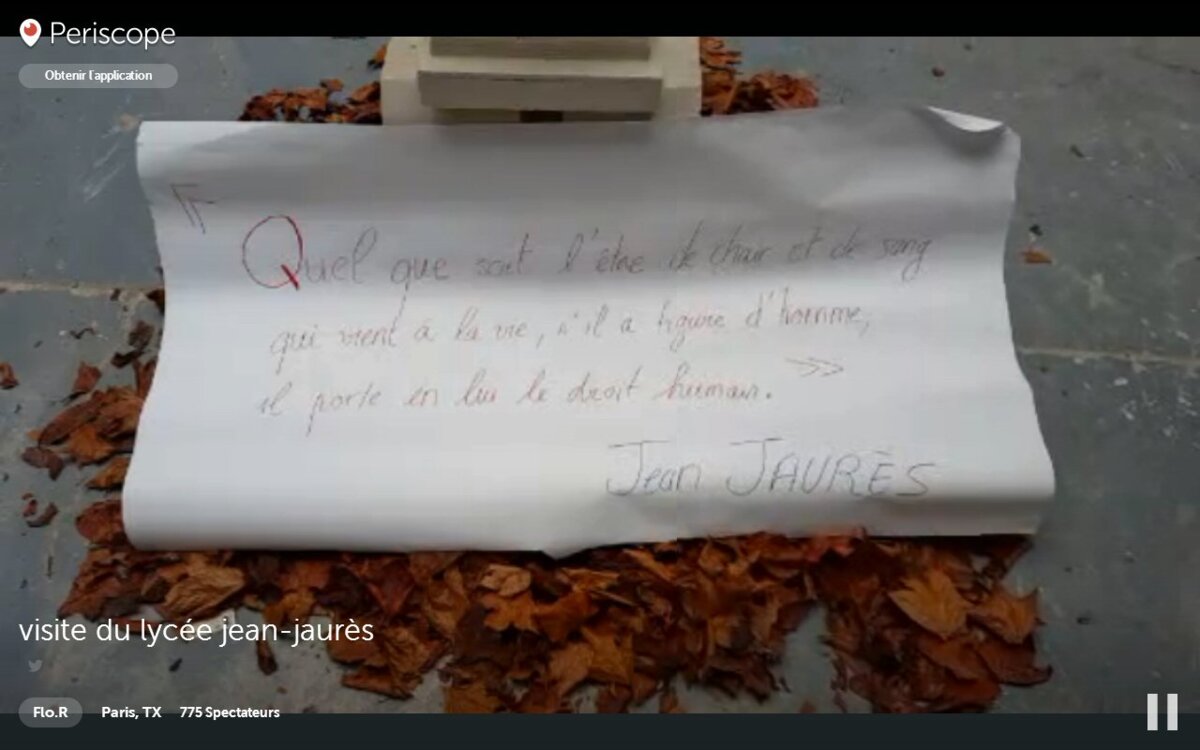 Periscope
Obtenir l'application
Quel que soit l'être de chair et de sang
qui vient à la vie, s'il a figure d'homme,
il porte en lui le droit humain. >>
Jean JAURÈS
visite du lycée jean-jaurès
Flo.R Paris, TX 775 Spectateurs